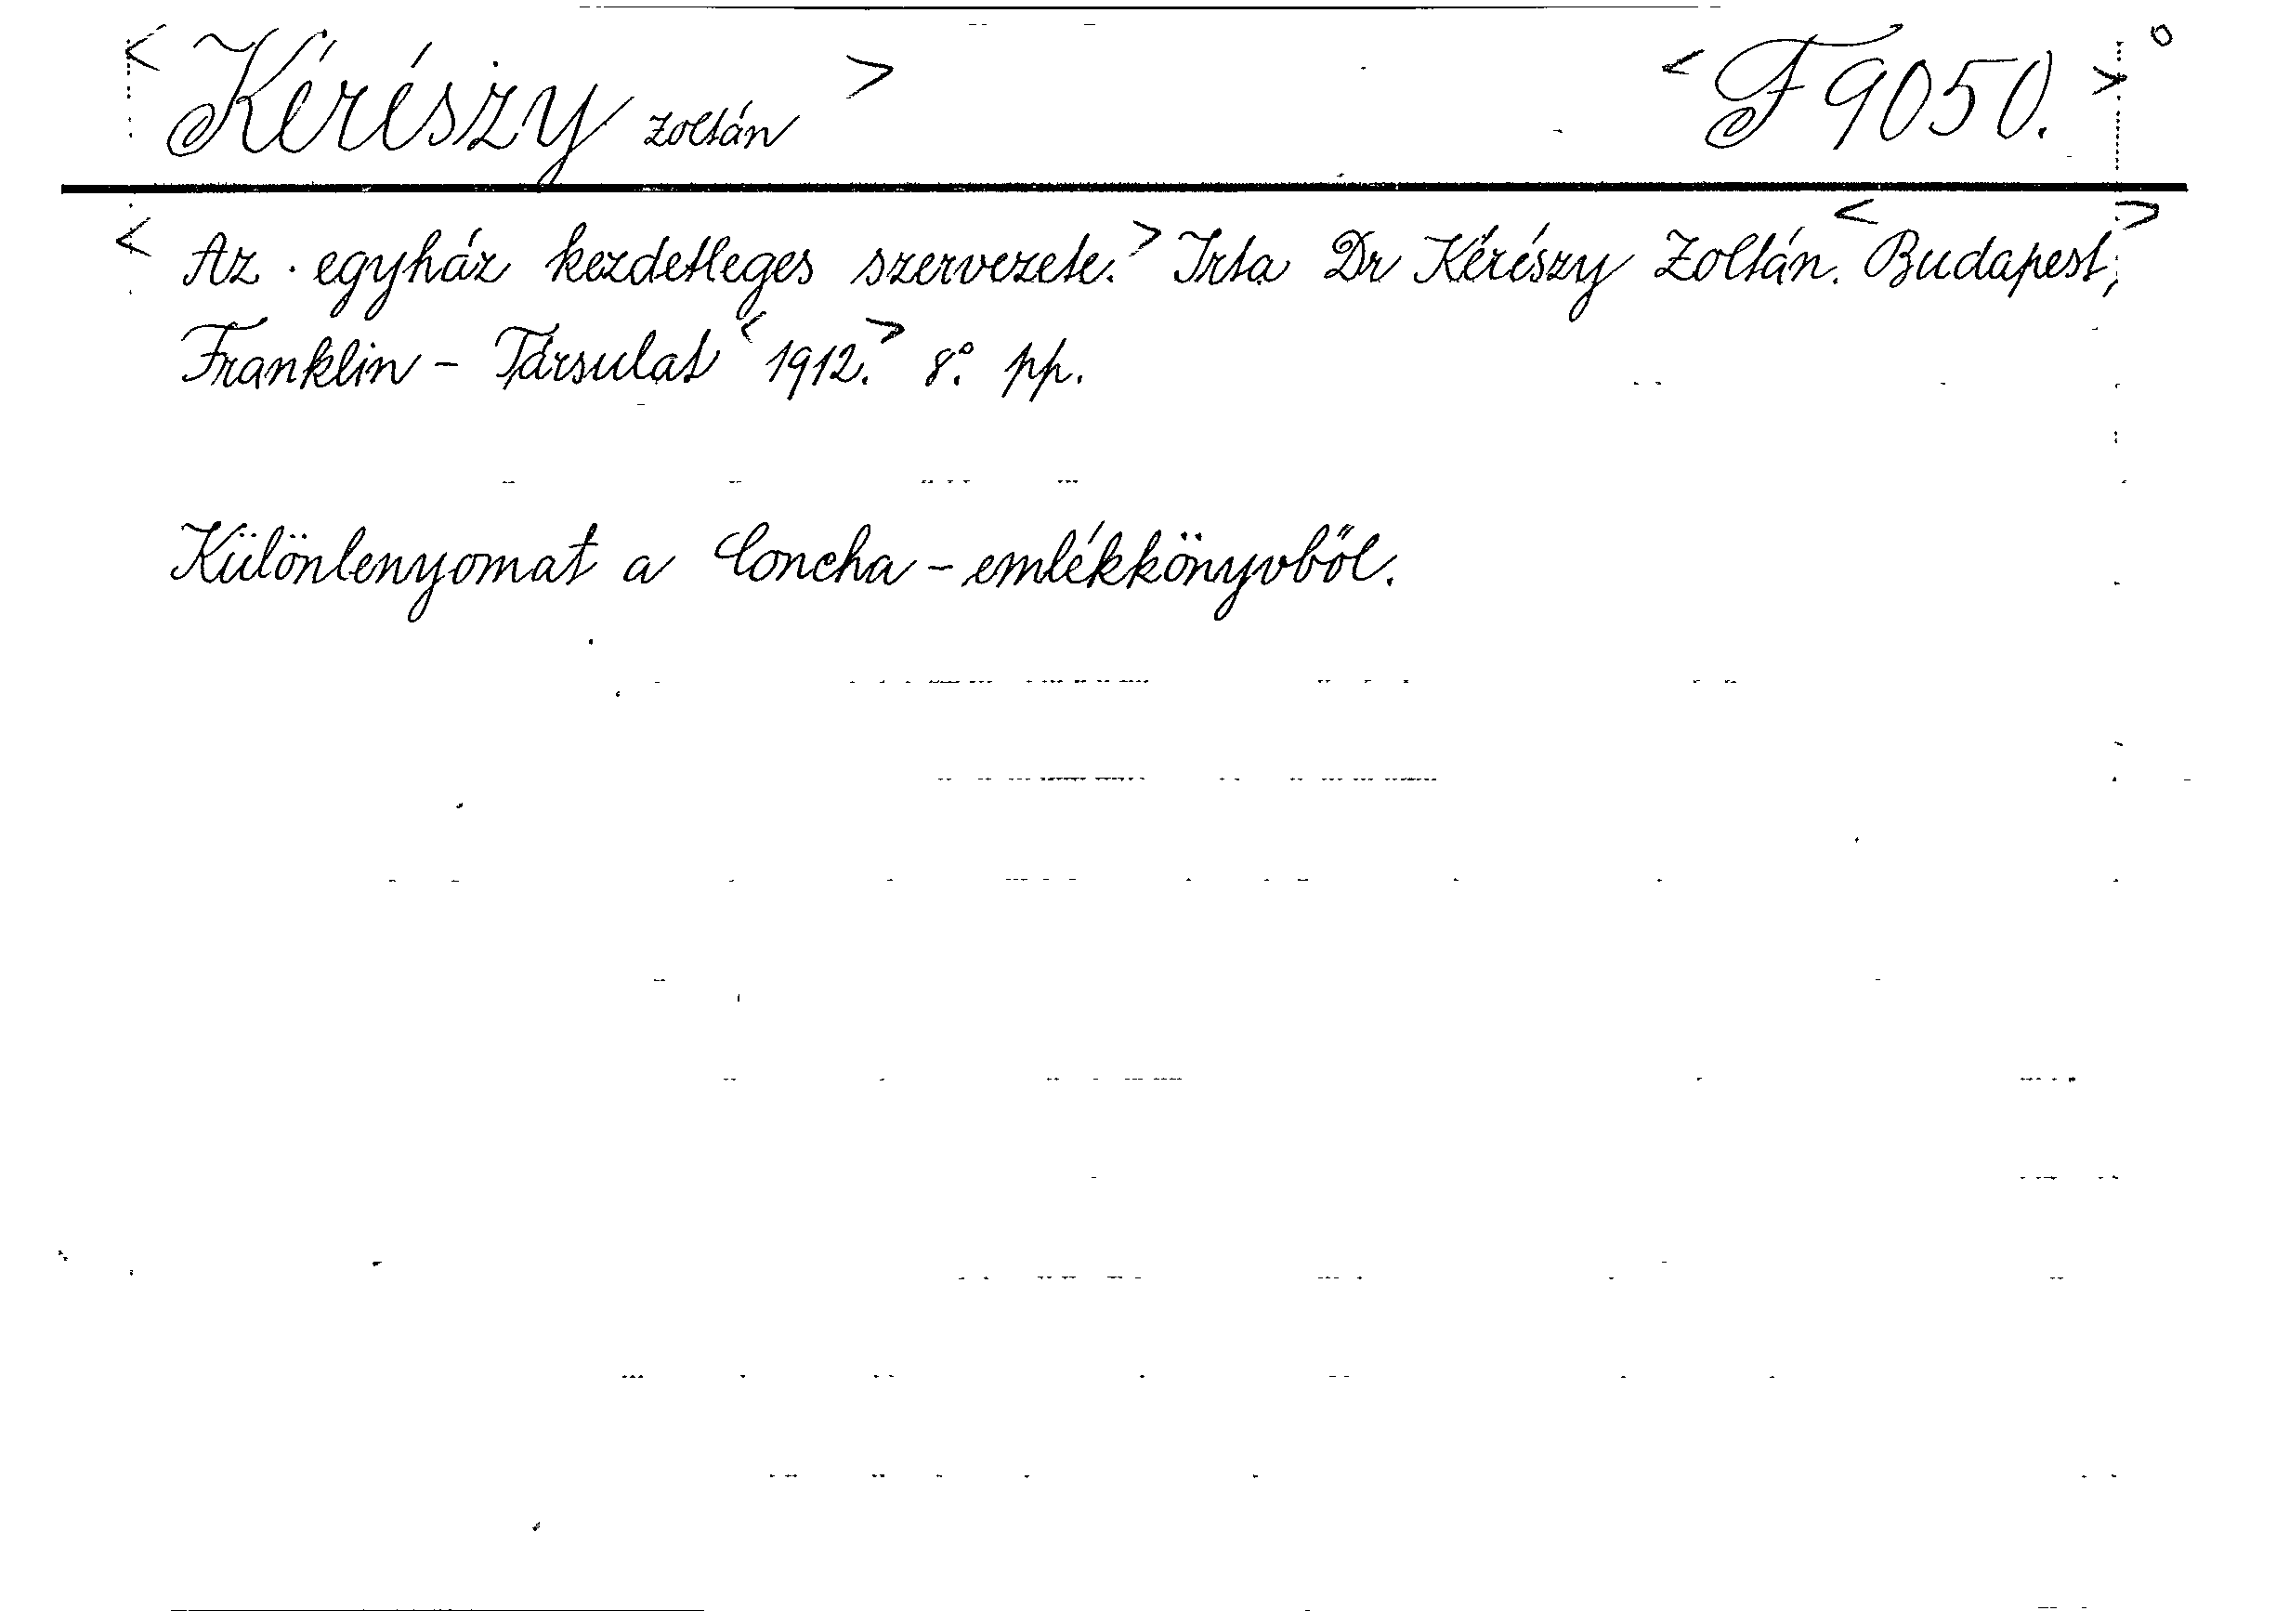 < Kérészy Zoltán > < F 9050. > o
< Az egyház kezdetleges szervezete. > Irta Dr Kérészy Zoltán. < Budapest, >
Franklin - Társulat < 1912. > 8° pp.
Különlenyomat a Concha - emlékkönyvből.